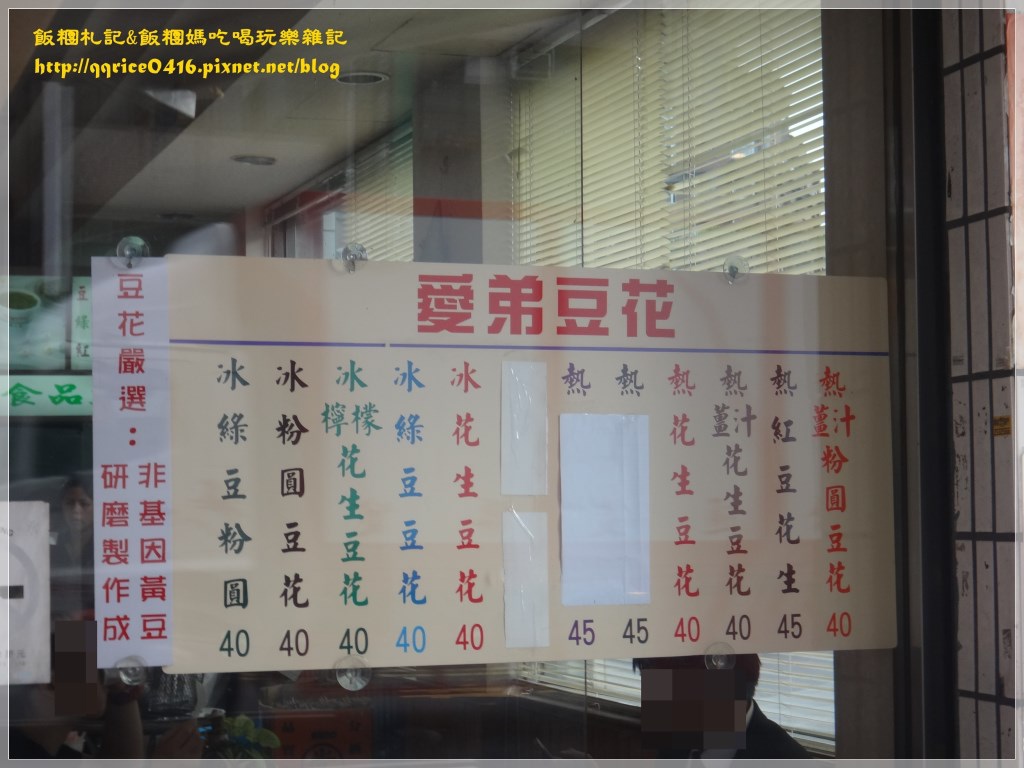 飯糰札記&飯糰媽吃喝玩樂雜記
http://qqrice0416.pixnet.net/blog
愛弟豆花
熱薑汁粉圓豆花 40
熱紅豆花生 45
熱薑汁花生豆花 40
熱花生豆花 40
熱 45
熱 45
冰花生豆花 40
冰綠豆豆花 40
冰檸檬花生豆花 40
冰粉圓豆花 40
冰綠豆粉圓 40
豆花嚴選：
非基因黃豆
研磨製作成
豆
綠
紅
食品